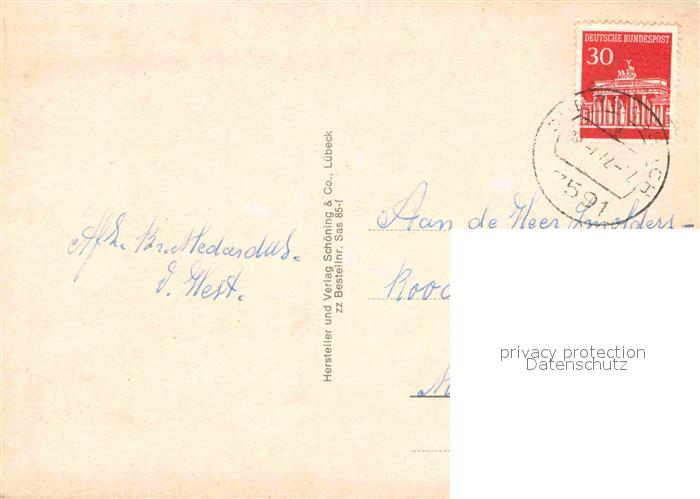 DEUTSCHE BUNDESPOST
30
7591
Afz. Br. Medardus.
v. West.
Hersteller und Verlag Schöning & Co., Lübeck
zz Bestellnr. Sas 85-f
Aan de Heer Smolders-
privacy protection
Datenschutz